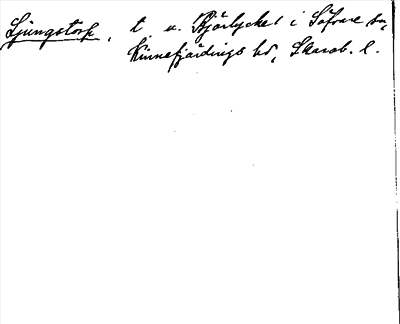 Ljungstorp, t. u. Björlycket i Säfvare sn,
Kinnefjärdings hd, Skarab. l.